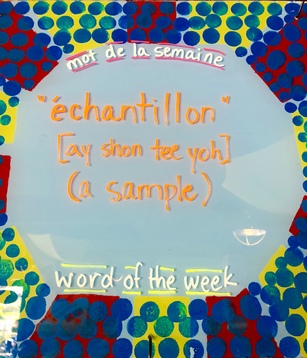 mot de la semaine
"échantillon"
[ay shon tee yoh]
(a sample)
word of the week